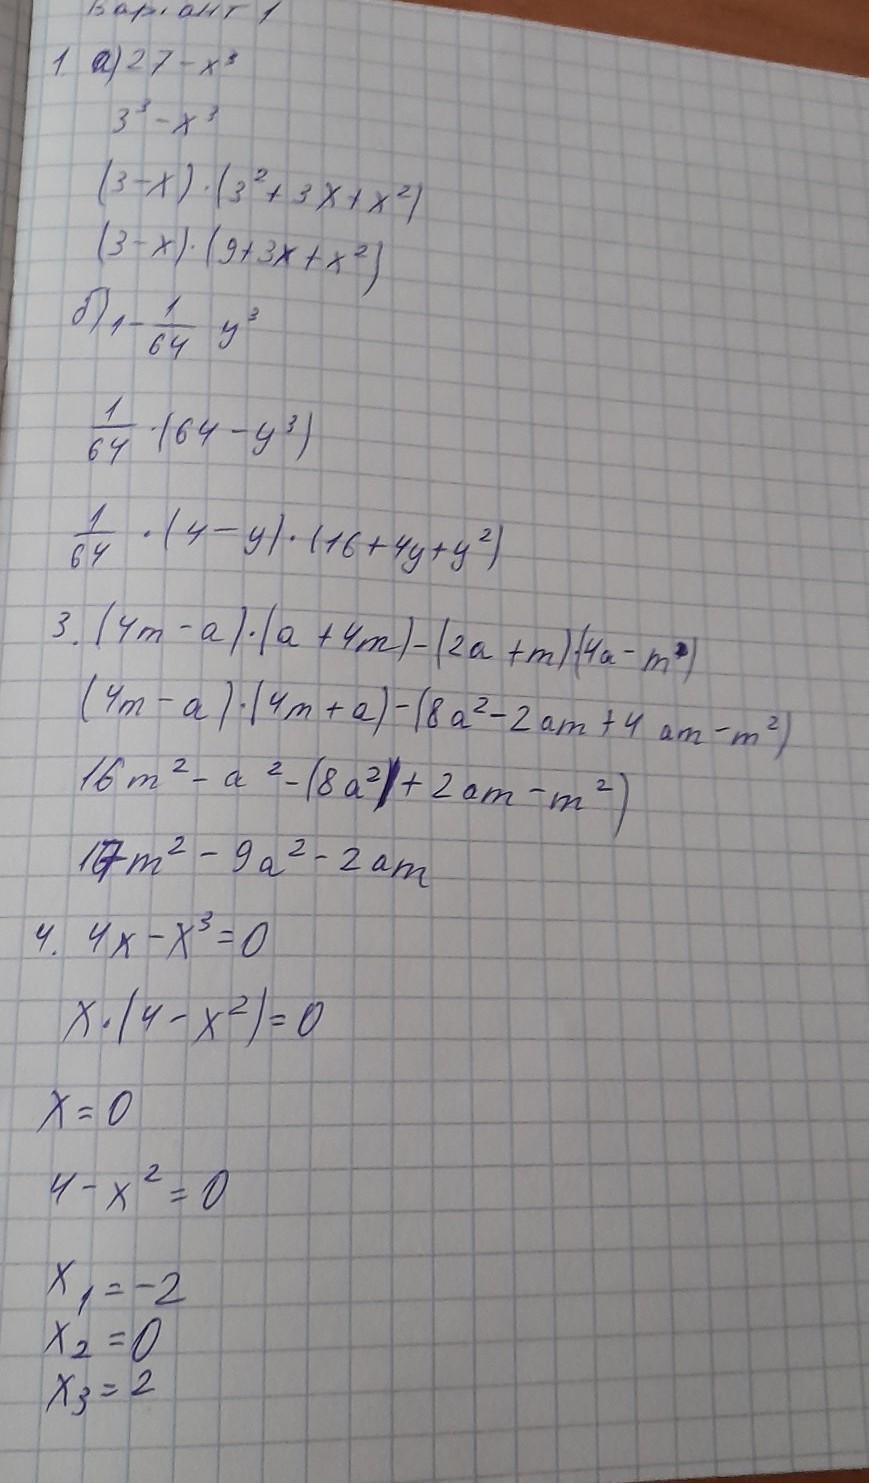 Вариант 1
1 а) 27 - x³
3³ - x³
(3-x)·(3²+3x+x²)
(3-x)·(9+3x+x²)
б) 1 - 1/64 y³
1/64 ·(64-y³)
1/64 ·(4-y)·(16+4y+y²)
3. (4m-a)·(a+4m)-(2a+m)(4a-m)
(4m-a)·(4m+a)-(8a²-2am+4am-m²)
16m²-a²-(8a²+2am-m²)
17m²-9a²-2am
4. 4x-x³=0
x·(4-x²)=0
x=0
4-x²=0
x₁=-2
x₂=0
x₃=2